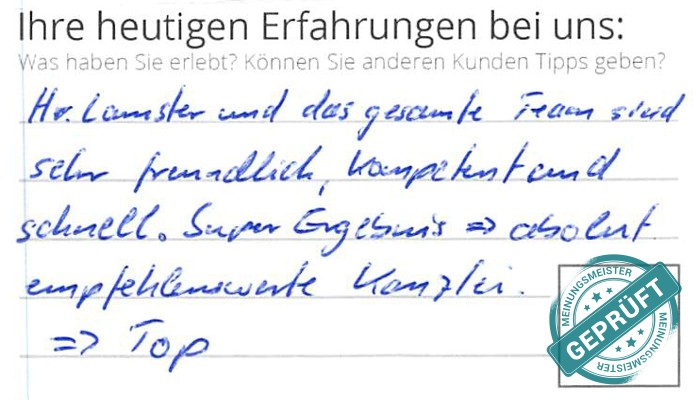 Ihre heutigen Erfahrungen bei uns:
Was haben Sie erlebt? Können Sie anderen Kunden Tipps geben?
Hr. Lamster und das gesamte Team sind
sehr freundlich, kompetent und
schnell. Super Ergebnis => absolut
empfehlenswerte Kanzlei.
=> Top
MEINUNGSMEISTER
GEPRÜFT
MEINUNGSMEISTER